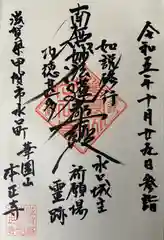 令和五年十月廿九日参詣
水口城主
祈願場
霊跡
如説修行
南無妙法蓮華経
滋賀県甲賀市水口町
華園山
本正寺